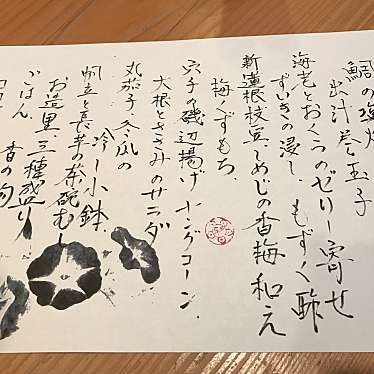 鯛の塩焼
出汁巻玉子
海老とおくらのゼリー寄せ
ずいきの浸し もずく酢
新蓮根枝豆しめじの香梅和え
梅くずもち
穴子の磯辺揚げ ヤングコーン
大根とささみのサラダ
丸茄子、冬瓜の
冷し小鉢
帆立と長芋の茶碗むし
お造里三種盛り
ごはん 香の物